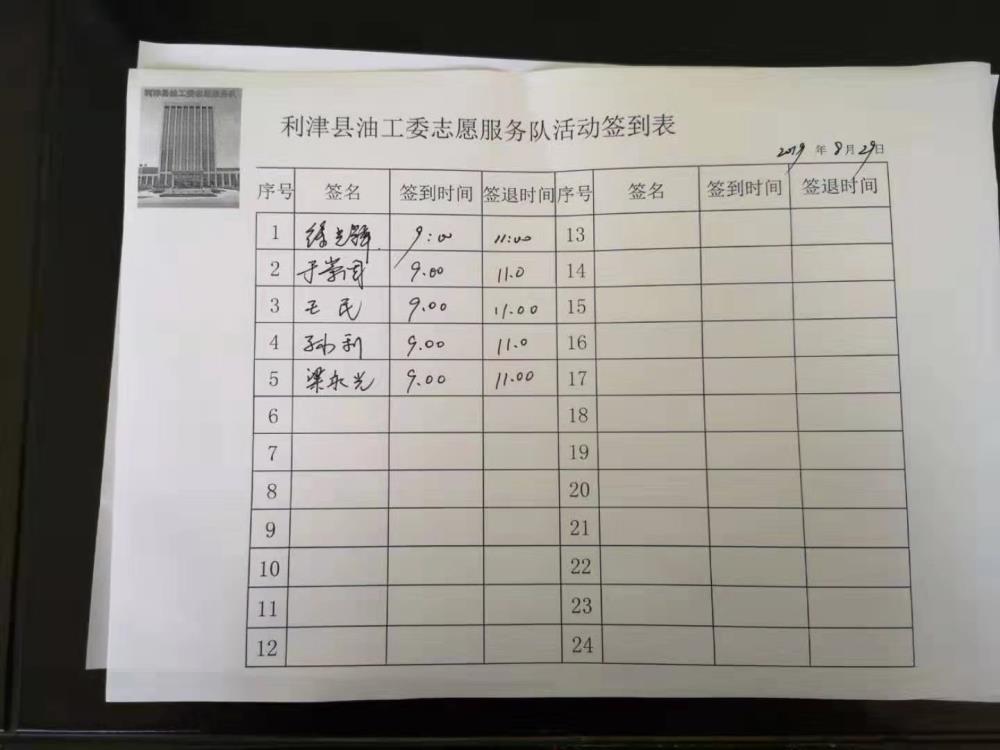 利津县油工委志愿服务队
利津县油工委志愿服务队活动签到表
2019 年 8 月 29 日
序号 签名 签到时间 签退时间 序号 签名 签到时间 签退时间
1 9:00 11:00 13
2 9.00 11.0 14
3 王民 9.00 11.00 15
4 孙利 9.00 11.0 16
5 梁永光 9.00 11.00 17
6 18
7 19
8 20
9 21
10 22
11 23
12 24